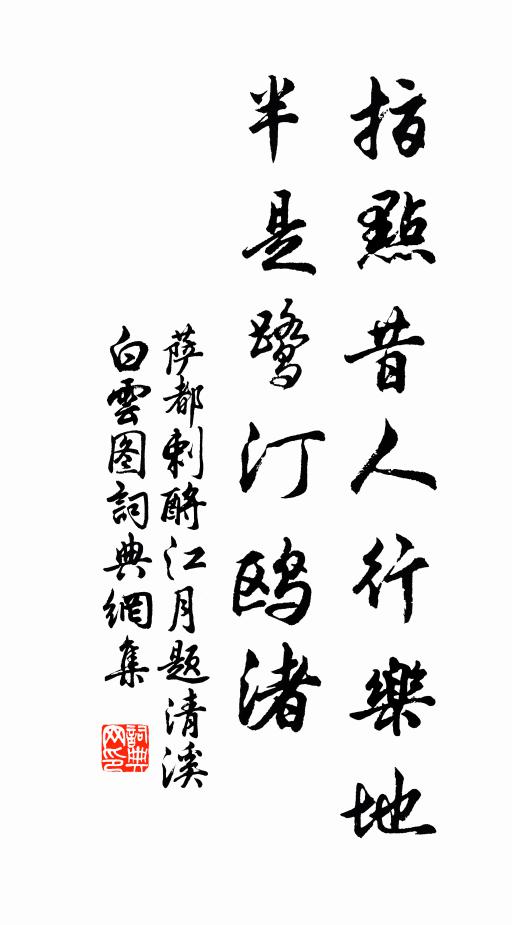 指點昔人行樂地
半是鷺汀鸥渚
萨都剌酹江月题清溪
白雲图詞典網集
詞典网印